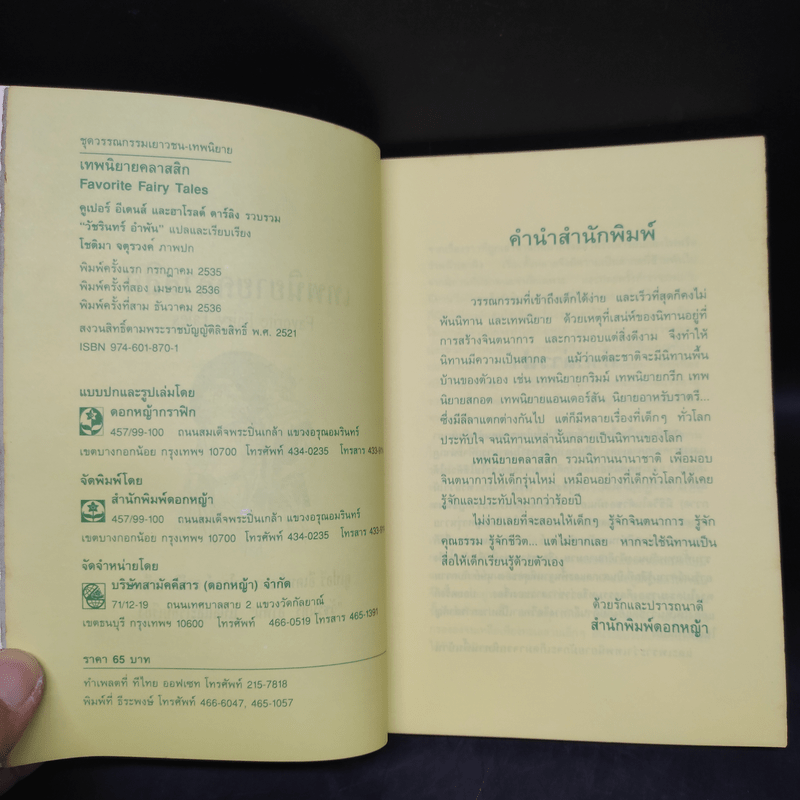 ชุดวรรณกรรมเยาวชน-เทพนิยาย
เทพนิยายคลาสสิก
Favorite Fairy Tales
คูเปอร์ อีเดนส์ และฮาโรลด์ ดาร์ลิง รวบรวม
"วัชรินทร์ อำพัน" แปลและเรียบเรียง
โชติมา จตุรวงค์ ภาพปก
พิมพ์ครั้งแรก กรกฎาคม 2535
พิมพ์ครั้งที่สอง เมษายน 2536
พิมพ์ครั้งที่สาม ธันวาคม 2536
สงวนสิทธิ์ตามพระราชบัญญัติลิขสิทธิ์ พ.ศ. 2521
ISBN 974-601-870-1
แบบปกและรูปเล่มโดย
ดอกหญ้ากราฟิก
457/99-100 ถนนสมเด็จพระปิ่นเกล้า แขวงอรุณอมรินทร์
เขตบางกอกน้อย กรุงเทพฯ 10700 โทรศัพท์ 434-0235 โทรสาร
จัดพิมพ์โดย
สำนักพิมพ์ดอกหญ้า
457/99-100 ถนนสมเด็จพระปิ่นเกล้า แขวงอรุณอมรินทร์
เขตบางกอกน้อย กรุงเทพฯ 10700 โทรศัพท์ 434-0235 โทรสาร
จัดจำหน่ายโดย
บริษัทสามัคคีสาร (ดอกหญ้า) จำกัด
71/12-19 ถนนเทศบาลสาย 2 แขวงวัดกัลยาณ์
เขตธนบุรี กรุงเทพฯ 10600 โทรศัพท์ 466-0519 โทรสาร 465-1391
ราคา 65 บาท
ทำเพลตที่ ทีไทย ออฟเซท โทรศัพท์ 215-7818
พิมพ์ที่ ธีระพงษ์ โทรศัพท์ 466-6047, 465-1057
คำนำสำนักพิมพ์
วรรณกรรมที่เข้าถึงเด็กได้ง่าย และเร็วที่สุดก็คงไม่
พ้นนิทาน และเทพนิยาย ด้วยเหตุที่เสน่ห์ของนิทานอยู่ที่
การสร้างจินตนาการ และการมอบแต่สิ่งดีงาม จึงทำให้
นิทานมีความเป็นสากล แม้ว่าแต่ละชาติจะมีนิทานพื้น
บ้านของตัวเอง เช่น เทพนิยายกริมม์ เทพนิยายกรีก เทพ
นิยายสกอต เทพนิยายแอนเดอร์สัน นิยายอาหรับราตรี...
ซึ่งมีลีลาแตกต่างกันไป แต่ก็มีหลายเรื่องที่เด็กๆ ทั่วโลก
ประทับใจ จนนิทานเหล่านั้นกลายเป็นนิทานของโลก
เทพนิยายคลาสสิก รวมนิทานนานาชาติ เพื่อมอบ
จินตนาการให้เด็กรุ่นใหม่ เหมือนอย่างที่เด็กทั่วโลกได้เคย
รู้จักและประทับใจมากว่าร้อยปี
ไม่ง่ายเลยที่จะสอนให้เด็กๆ รู้จักจินตนาการ รู้จัก
คุณธรรม รู้จักชีวิต... แต่ไม่ยากเลย หากจะใช้นิทานเป็น
สื่อให้เด็กเรียนรู้ด้วยตัวเอง
ด้วยรักและปรารถนาดี
สำนักพิมพ์ดอกหญ้า